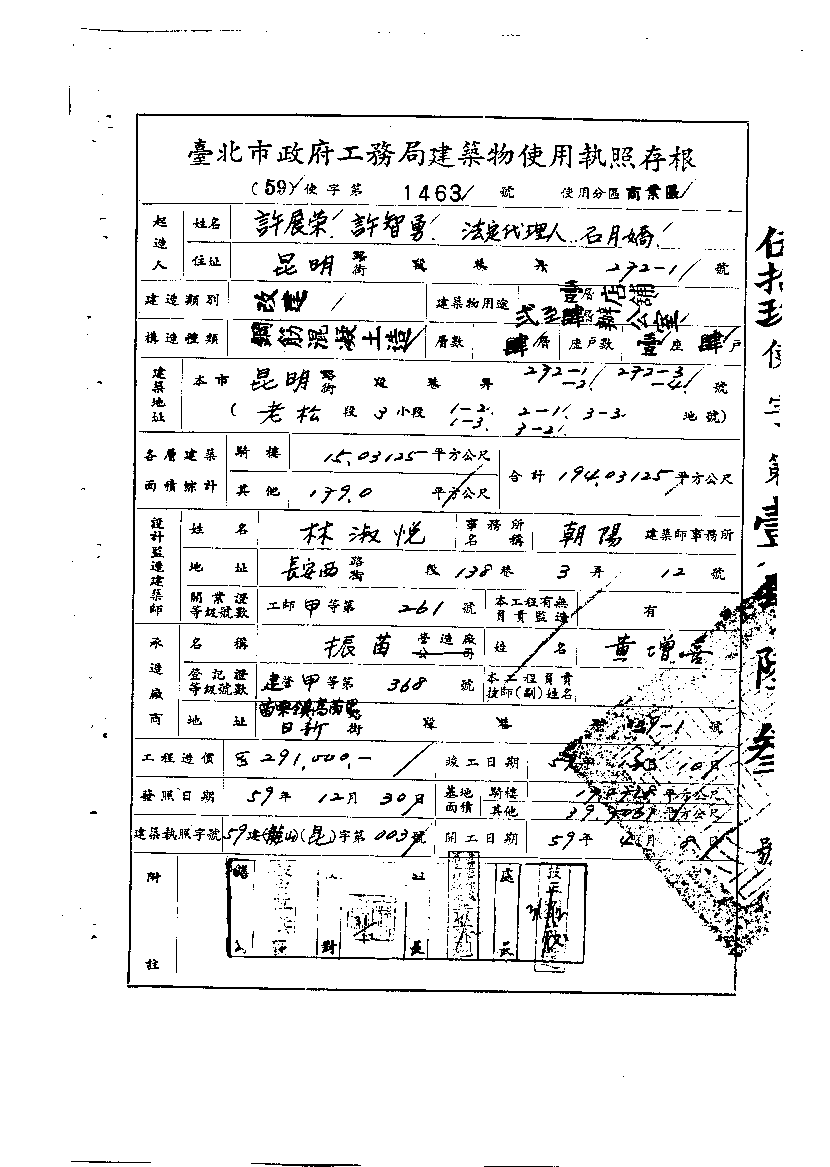 臺北市政府工務局建築物使用執照存根
(59)使字第 1463 號 使用分區 商業區
起造人 姓名 許展荣 許智勇 法定代理人 石月嬌
住址 昆明 路街 段 巷 弄 272-1 號
建造類別 改建 建築物用途 壹層店鋪
弍至肆層辦公室
構造種類 鋼筋混凝土造 層數 肆層 座戶數 壹座 肆戶
建築地址 本市 昆明 路街 段 巷 弄 272-1 -2 272-3 -4 號
(老松 段 3 小段 1-2. 1-3. 2-1. 3-2. 3-3 地號)
各層建築面積綜計 騎樓 15.03125 平方公尺 合計 194.03125 平方公尺
其他 179.0 平方公尺
設計監造建築師 姓名 林淑悅 事務所名稱 朝陽 建築師事務所
地址 長安西 路街 段 138 巷 3 弄 12 號
開業證等級號數 工師 甲 等第 261 號 本工程有無負責監造 有
承造廠商 名稱 振苗 營造廠公司 姓名 黃增喜
登記證等級號數 建登 甲 等第 368 號 本工程負責技師(副)姓名
地址 苗栗鎮高苗里 日新 路街 段 巷 弄 號
工程造價 291,000.- 竣工日期 59年 月 10日
發照日期 59年 12月 30日 基地面積 騎樓 平方公尺
其他 平方公尺
建築執照字號 59建(龍山)(昆)字第003號 開工日期 59年 4月 8日
附註
對
處
伍拾玖使字第壹 陸叁號